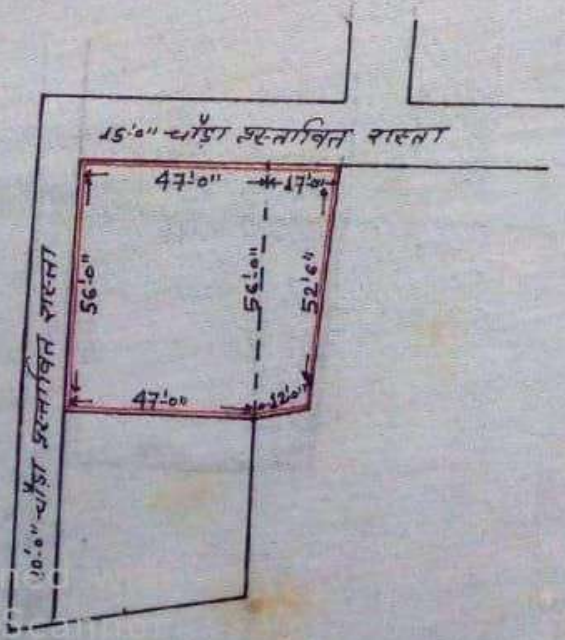 15'-0" चौड़ा प्रस्तावित रास्ता
47'-0" 17'-0"
56'-0"
56'-0"
52'-6"
47'-0" 12'-0"
10'-0" चौड़ा प्रस्तावित रास्ता